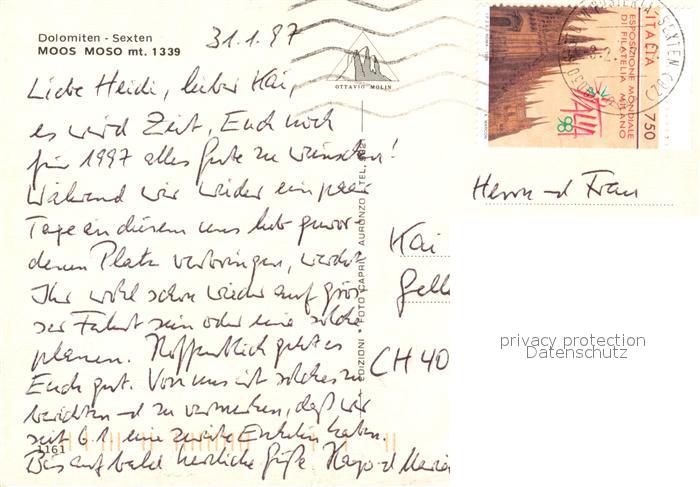 Dolomiten - Sexten
MOOS MOSO mt. 1339
31.1.97
OTTAVIO MOLIN
Liebe Heidi, lieber Kai,
es wird Zeit, Euch noch
für 1997 alles Gute zu wünschen!
Während wir wieder ein paar
Tage an diesem uns lieb gewor
denen Platz verbringen, werdet
Ihr wohl schon wieder auf gros-
ser Fahrt sein oder eine solche
planen. Hoffentlich geht es
Euch gut. Von uns ist solches zu
berichten und zu vermerken, daß wir
seit 6.1. eine zweite Enkelin haben.
Bis auf bald herzliche Grüße Hayo d Maria
1161
EDIZIONI • FOTO CAPRI AURONZO TEL.
ITALIA
ESPOSIZIONE MONDIALE
DI FILATELIA MILANO
750
ITALIA
98
SEXTEN (BZ)
Herrn d Frau
Kai
Gelle
CH 40
privacy protection
Datenschutz